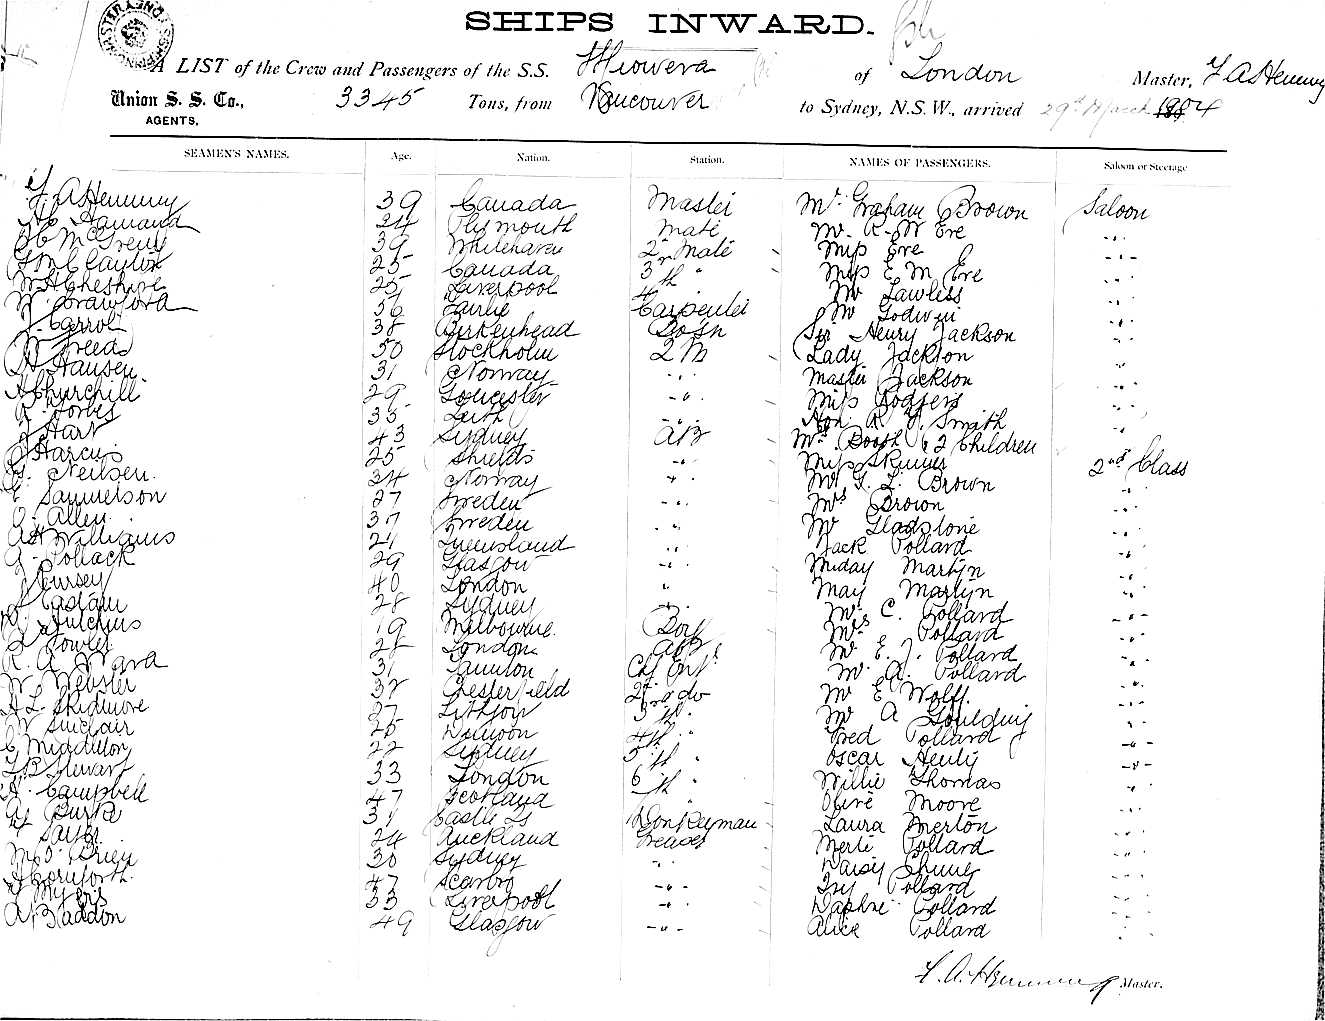 SHIPS INWARD.
A LIST of the Crew and Passengers of the S.S. Miowera of London Master, F A Hemming
Union S. S. Co., 3345 Tons, from Vancouver to Sydney, N.S.W., arrived 29th March 1904
AGENTS.
SEAMEN'S NAMES. Age. Nation. Station. NAMES OF PASSENGERS. Saloon or Steerage
F. A Hemming 39 Canada Master Mr Graham Brown Saloon
24 Plymouth Mate Mr R. W Eve - " -
39 Whitehaven 2nd Mate Miss Eve - " -
25 Canada 3rd " Miss E M Eve - " -
W H Cheshire 25 Liverpool 4th Mr Lawless - " -
W Crawford 56 Fairlie Carpenter Mr Godwin - " -
J. Carrol 38 Birkenhead Bosn Sir Henry Jackson - " -
50 Stockholm 2 M Lady Jackson - " -
H Hansen. 31 Norway - " - Master Jackson - " -
A Churchill 29 Gloucester - " - Miss Rodgers - " -
R. Forbes 35 Leith - " - Hon. R. Smith - " -
J Hart 43 Sydney AB Mrs Booth & 2 Children - " -
J Harcus 25 Shields - " - Miss Skinner 2nd Class
G. Neilsen. 24 Norway - " - Mr G. L. Brown - " -
E. Samuelson 27 Sweden - " - Mrs Brown - " -
O. Allen 37 Sweden - " - Mr Gladstone - " -
A H Williams 21 Queensland - " - Jack Pollard - " -
A. Pollack 29 Glasgow - " - Miday Martyn - " -
J Kersey 40 London " May Martyn - " -
28 Sydney - " - Mrs C. Pollard - " -
Hutchins 19 Melbourne. Boy Mrs Pollard - " -
Fowler 28 London AB Mr E. J. Pollard - " -
R. A Ward 31 Taunton Chf Engr Mr A. Pollard - " -
W. Webster 32 Chesterfield 2nd do Mr E Wolff. - " -
A L Skidmore 27 Lithgow 3rd " Mr A Goulding - " -
W Sinclair 25 4th " Fred Pollard - " -
C Middleton 22 Sydney 5th " Oscar Heintz - " -
Stewart 33 London 6th " Willie Thomas - " -
A. Campbell 47 Scotland " Olive Moore - " -
Burke 31 Castle Donkeyman Laura Merton - " -
24 Auckland Greaser Merle Pollard - " -
M O'Brien 30 Sydney - " - Daisy - " -
47 Scarbro - " - Ivy Pollard - " -
Myers 33 Liverpool - " - Daphne Pollard - " -
A Baddon 49 Glasgow - " - Alice Pollard "
F. A. Hemming Master.